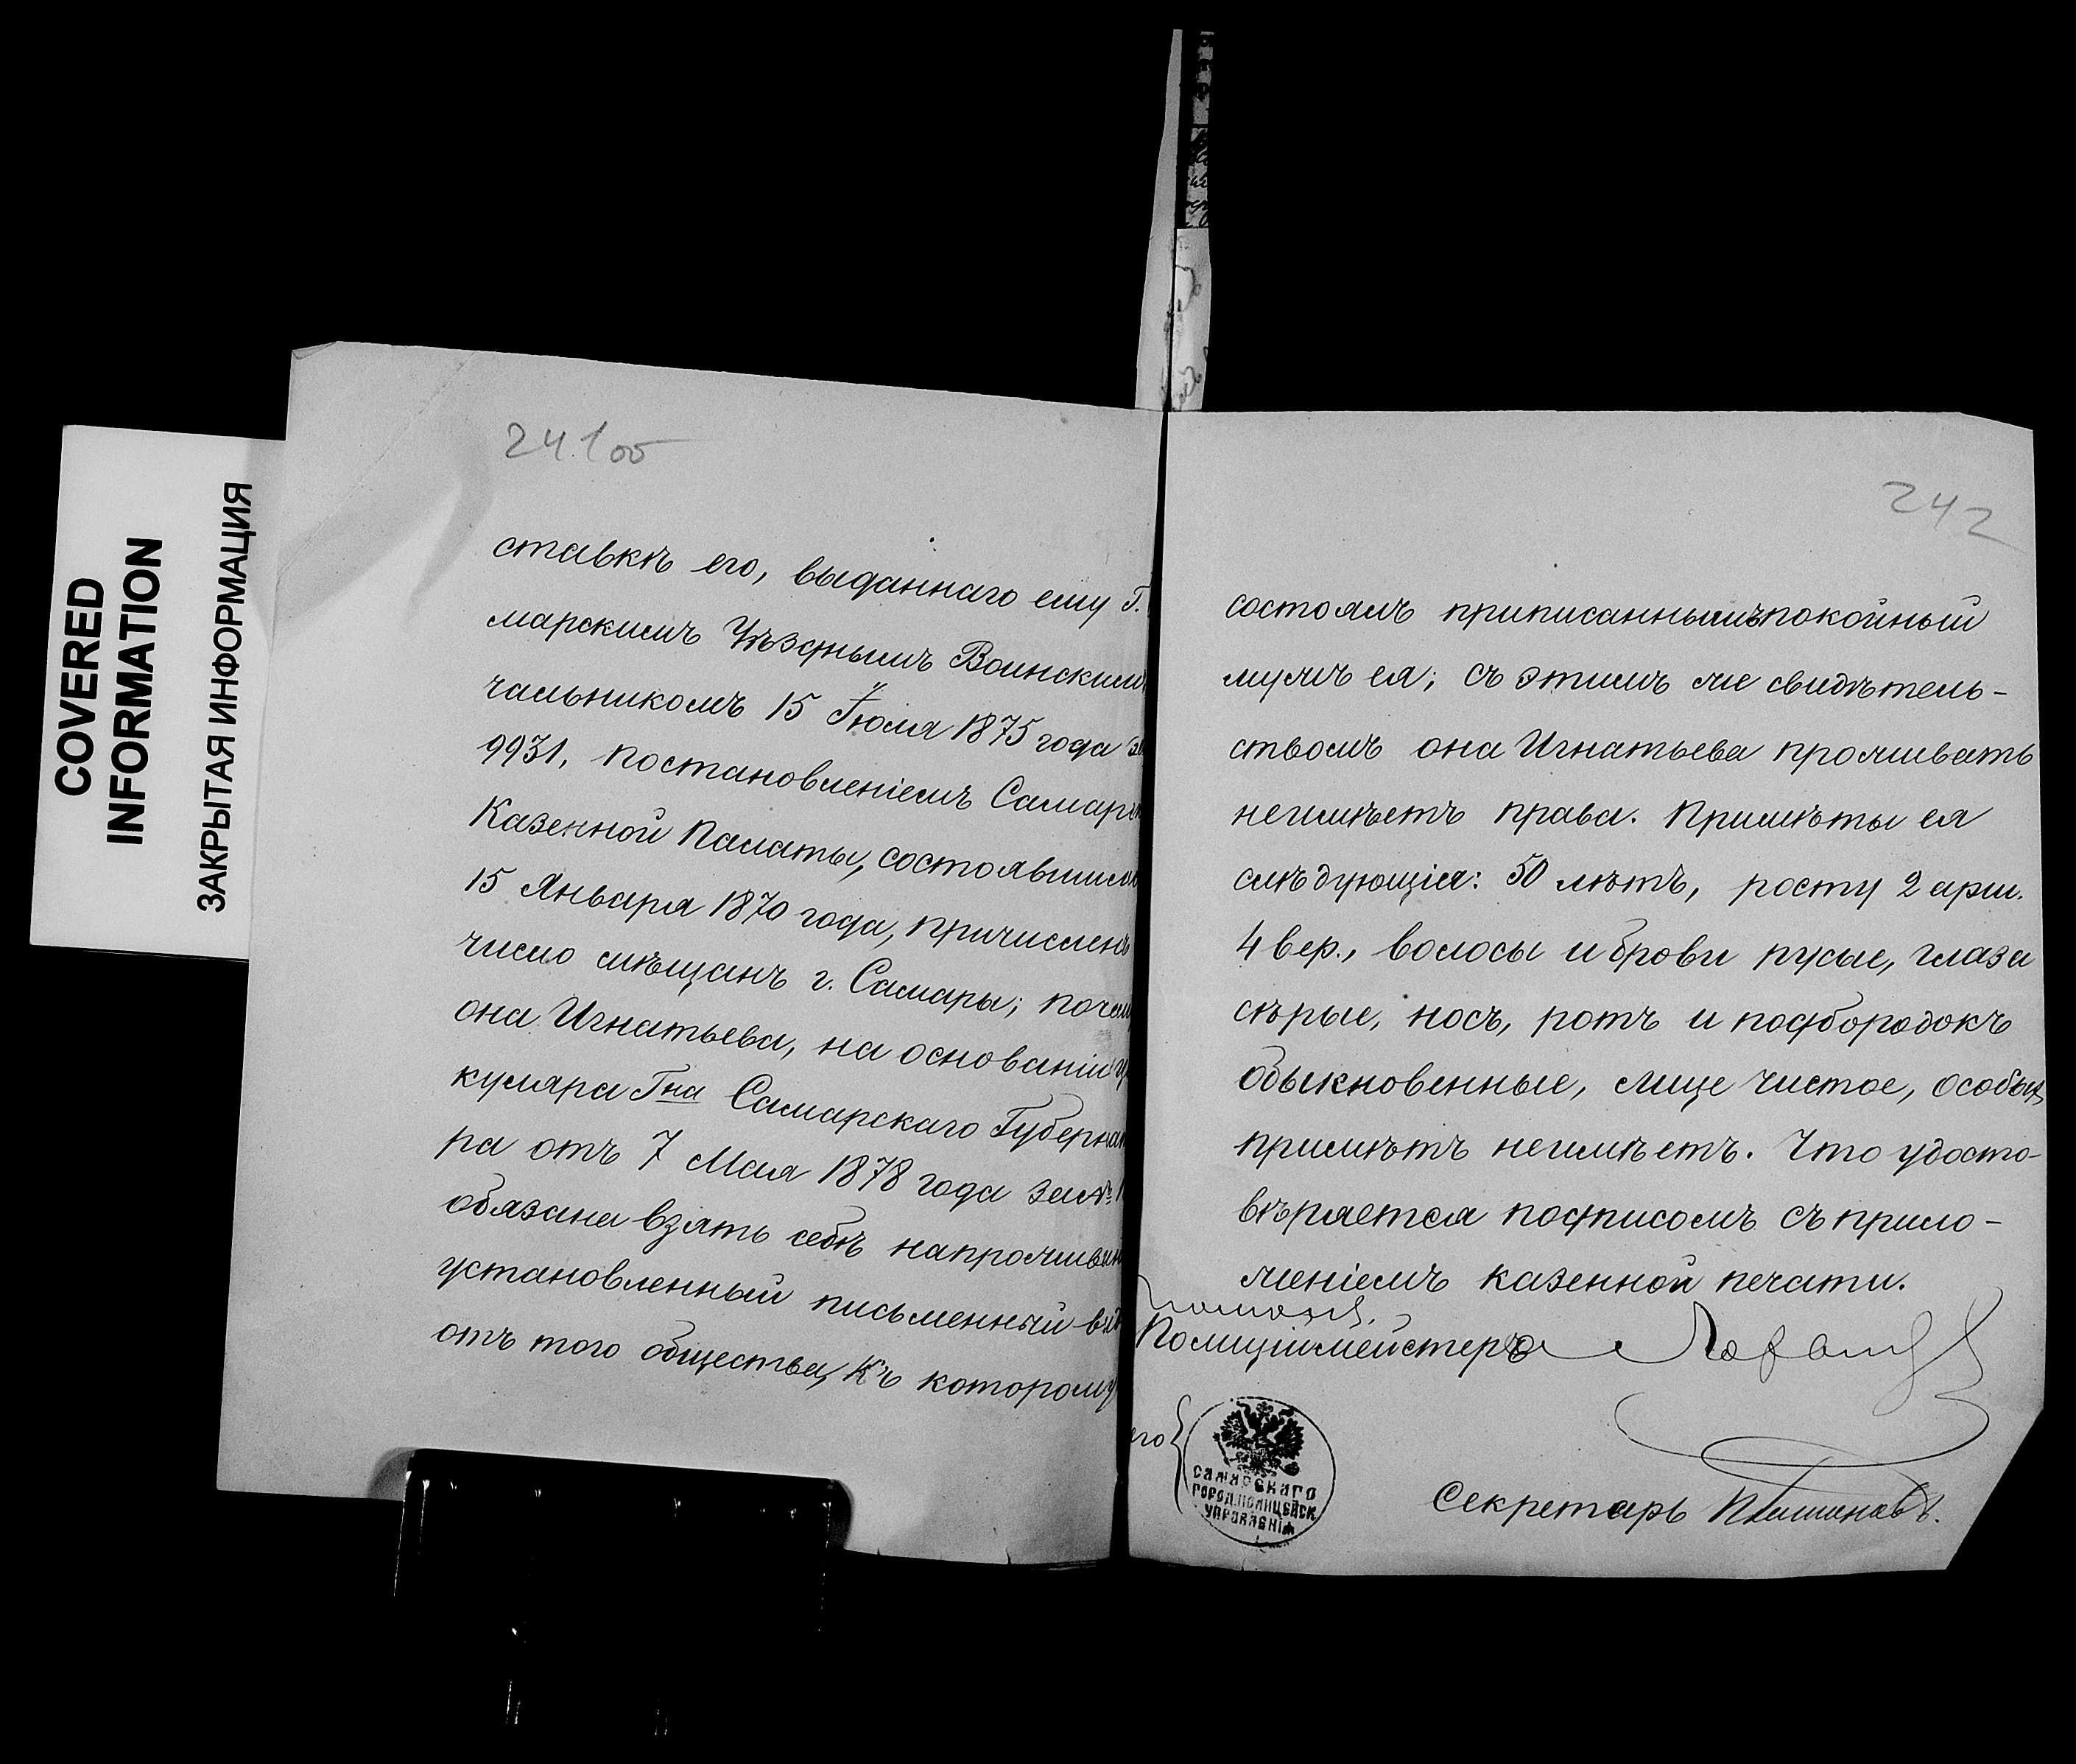 COVERED
INFORMATION
ЗАКРЫТАЯ ИНФОРМАЦИЯ
241 об
ставкѣ его, выданнаго ему Г.
марскимъ Уѣзднымъ Воинским
чальникомъ 15 Іюля 1875 года
9931, постановленіемъ Самарс
Казенной Палаты, состоявшимся
15 Января 1870 года, причисленъ
число мѣщанъ г. Самары; почем
она Игнатьева, на основаніи
куляра Гна Самарскаго Губерна
ра отъ 7 Мая 1878 года за №
обязана взять себѣ на проживан
установленный письменный ви
отъ того общества, къ которому
242
состоялъ приписаннымъ покойный
мужъ ея; съ этимъ же свидѣтель-
ствомъ она Игнатьева проживать
неимѣетъ права. Примѣты ея
слѣдующія: 50 лѣтъ, росту 2 арш.
4 вер., волосы и брови русые, глаза
сѣрые, носъ, ротъ и подбородокъ
обыкновенные, лице чистое, особых
примѣтъ неимѣетъ. Что удосто-
вѣряется подписомъ съ прило-
женіемъ казенной печати.
Полиціймейстера
его
САМАРСКАГО
ГОРОД. ПОЛИЦЕЙСК.
УПРАВЛЕНІЯ
Секретарь